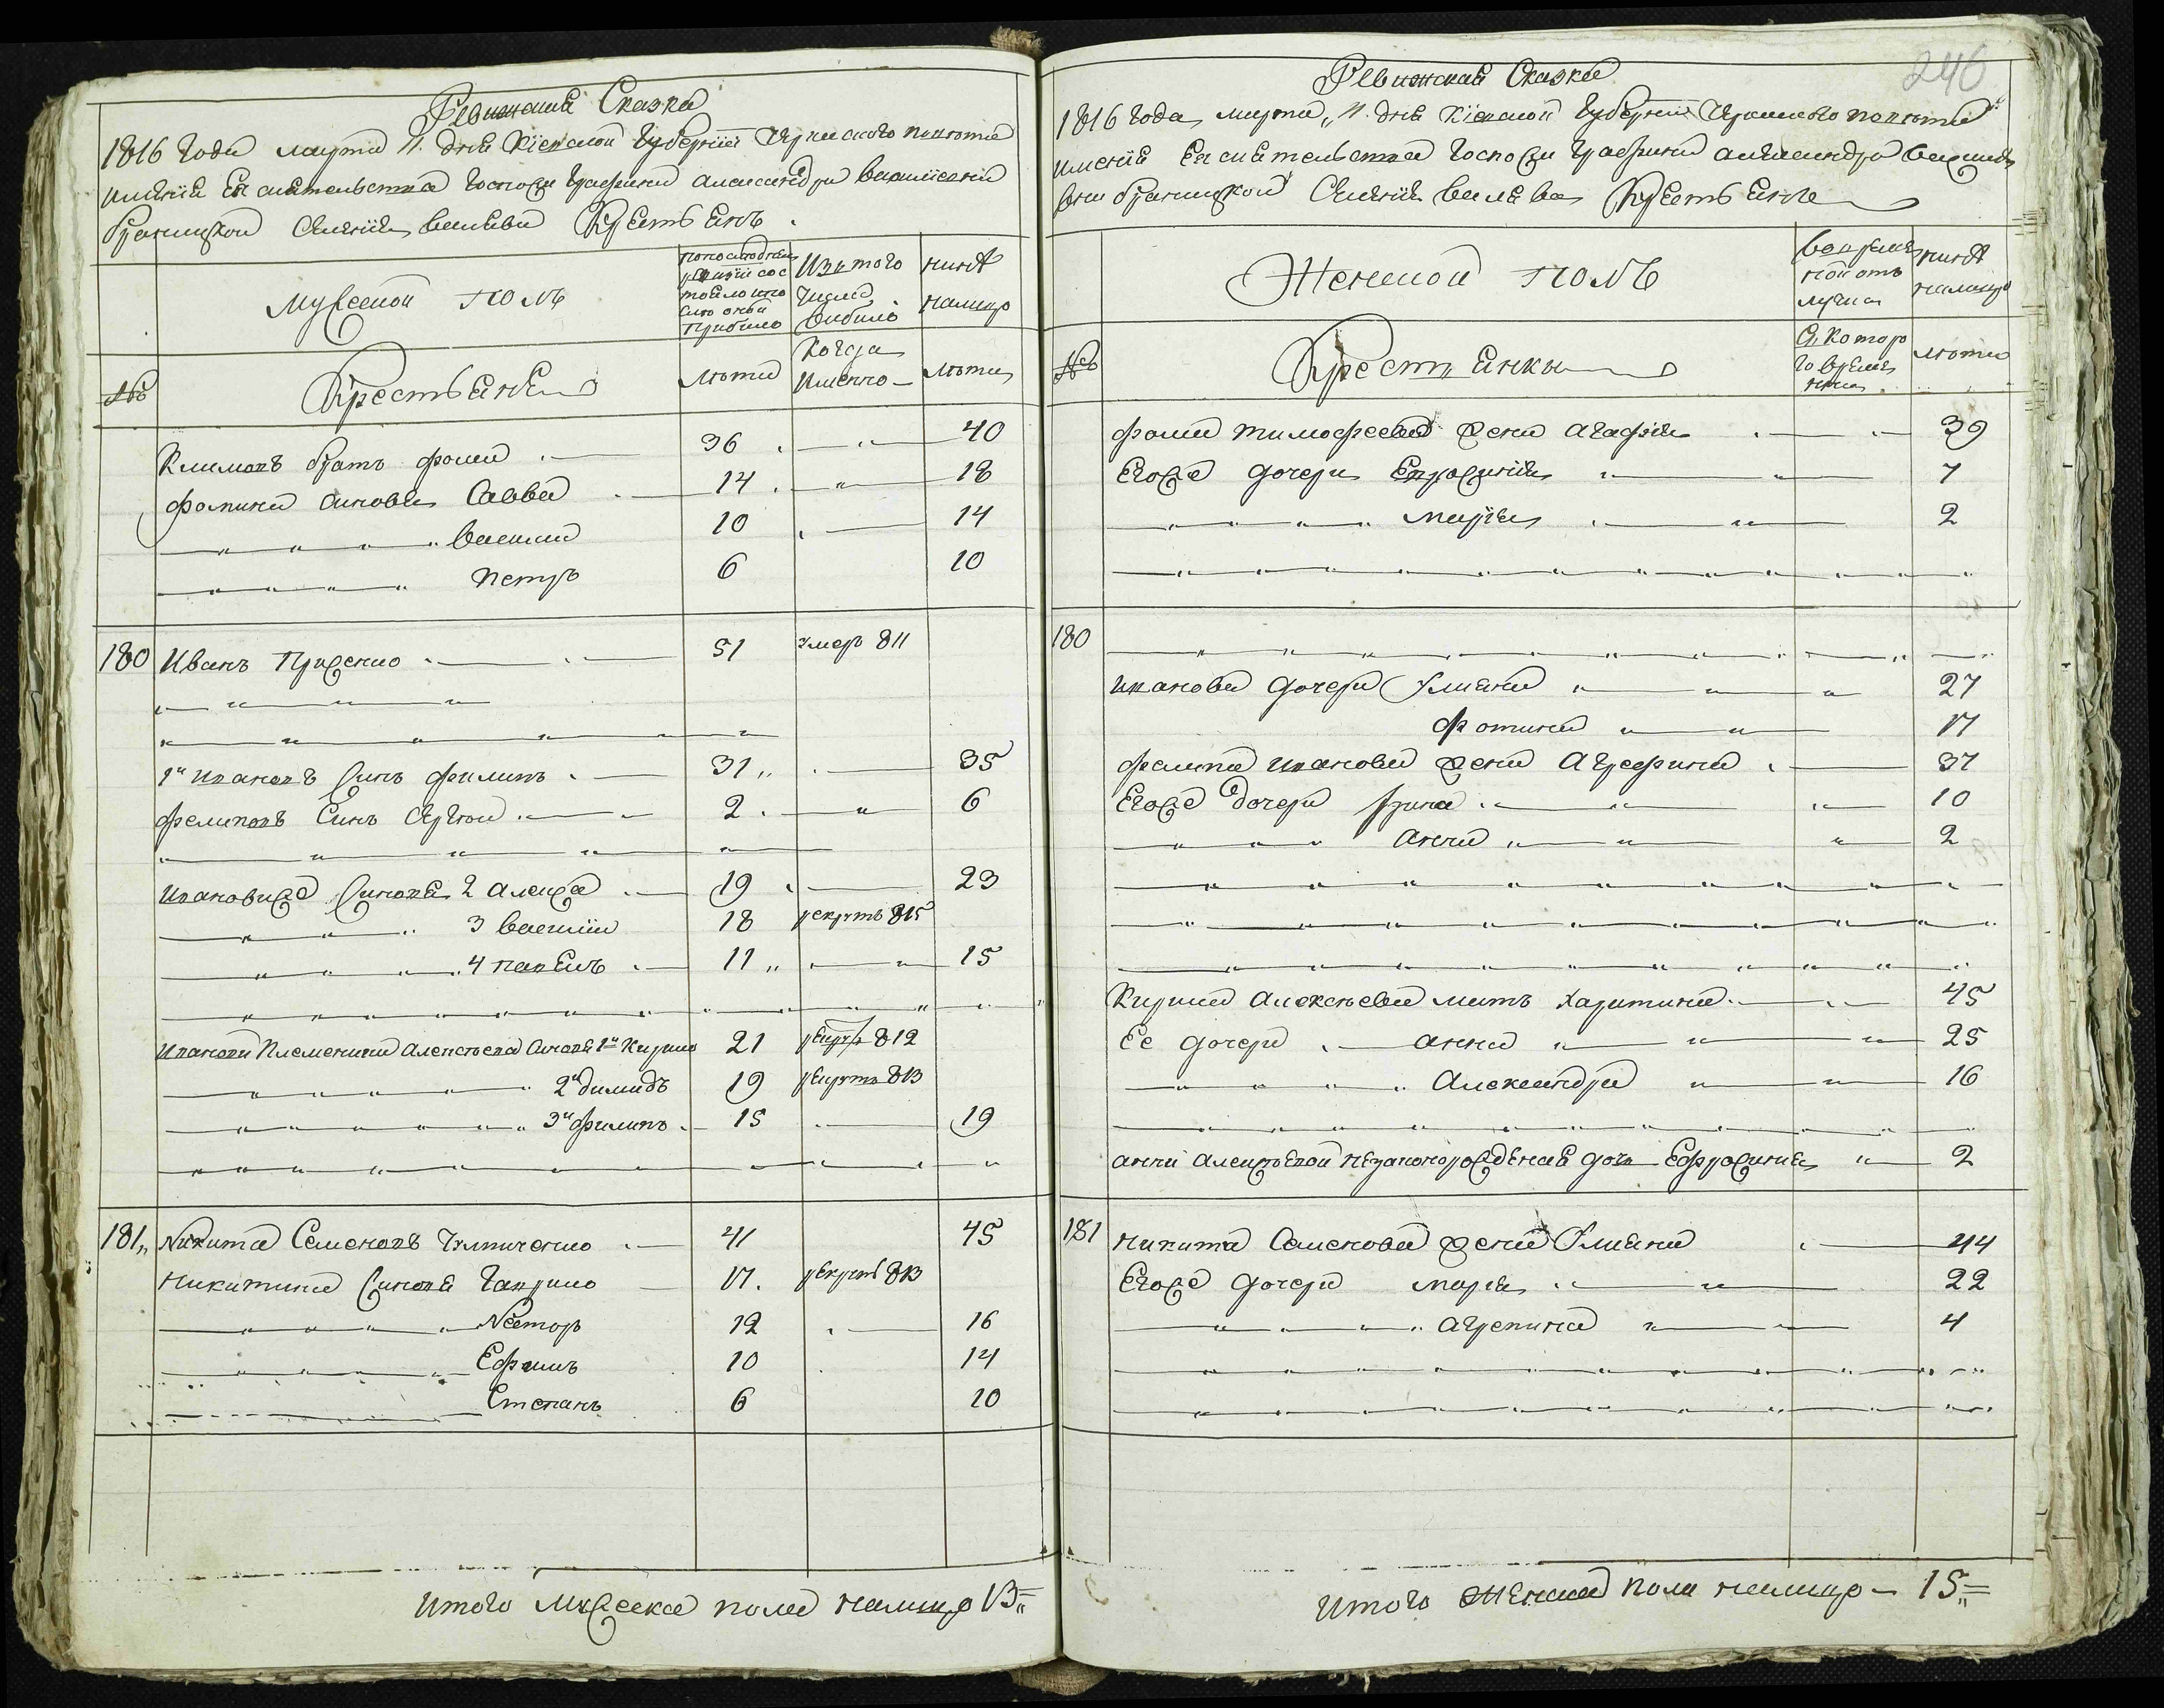 Ревижская Сказка
1816 Года марта 11. дня Кіевской Губерніи Чернаского повѣта
имѣнія Ея сиятельства Госпожи Графини александри василіевни
браницкой Селенія Крестьянъ.
Мужеской полъ
По последней ревизіи состояло и после оной прибыло
Изъ того числа выбыло
нинѣ налицо
№
Крестьяне
лѣта
Когда именно
лѣта
Климовъ братъ фома 36 40
фомини синовья Савва 14 18
василій 10 14
петръ 6 10
180 Иванъ Присенко 51 умеръ 811
1й ивановъ синъ филипъ 31 35
филиповъ Синъ Сергѣй 2 6
ивановиже синовья 2 алексѣй 19 23
3 василій 18 рекрутъ 815
4 павелъ 11 15
ивановы племеники алексѣева синовья 1й Кирило 21 рекрутъ 812
2й димидъ 19 рекрутъ 813
3й филипъ 15 19
181 Никита Семеновъ 41 45
Никитини синовья Гаврило 17 рекрутъ 813
Несторъ 12 16
Ефимъ 10 14
Степанъ 6 10
итого мужеска пола налицо 13
246
Ревижская Сказка
1816 года марта 11. дня Кіевской Губерніи Чернаского повѣта
имѣнія Ея сиятельства Госпожи Графини александри василіе
вни браницкой Селенія Крестьяне
Женской полъ
Во временной отлучке
нинѣ налицо
№
Крестьянки
Съ которого времени
лѣта
фоми тимофеева жена агафія 39
Егоже дочери Евросинія 7
марія 2
180
иванова дочери Уляна 27
фотина 17
филипа иванова жена агрефина 37
Егоже дочери Ірина 10
анна 2
Кирила алексѣева мать харитина 45
Ее дочери анна 25
александра 16
анни алексѣевой незаконорожденая дочь Ефросинія 2
181 никити Семенова жена Уляна 44
Егоже дочери марія 22
агрепина 4
итого женска пола налицо 15